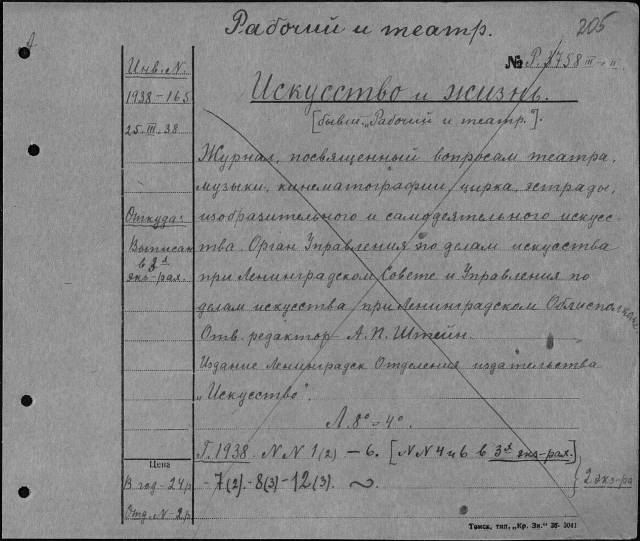 Рабочий и театр.
205
№ Р. 3758 III-II
Инв. N.
1938-165
25.III.38
Искусство и жизнь.
[бывш. „Рабочий и театр."].
Журнал, посвященный вопросам театра,
музыки, кинематографии, цирка, эстрады,
Откуда:
изобразительного и самодеятельного искусс-
Выписан
в 3х
экз-рах.
тва. Орган Управления по делам искусства
при Ленинградском Совете и Управления по
делам искусства при Ленинградском Облисполкоме
Отв. редактор А. П. Штейн.
Издание Ленинградск Отделения издательства
„Искусство".
Л. 8° = 4°.
Г. 1938. NN 1(2) – 6. [NN 4 и 6 в 3х экз-рах.]
Цена
В год – 24 р
Отд. N – 2 р
– 7(2). – 8(3) – 12(3).
2 экз-ра
Томск, тип. „Кр. Зн." 36- 3041